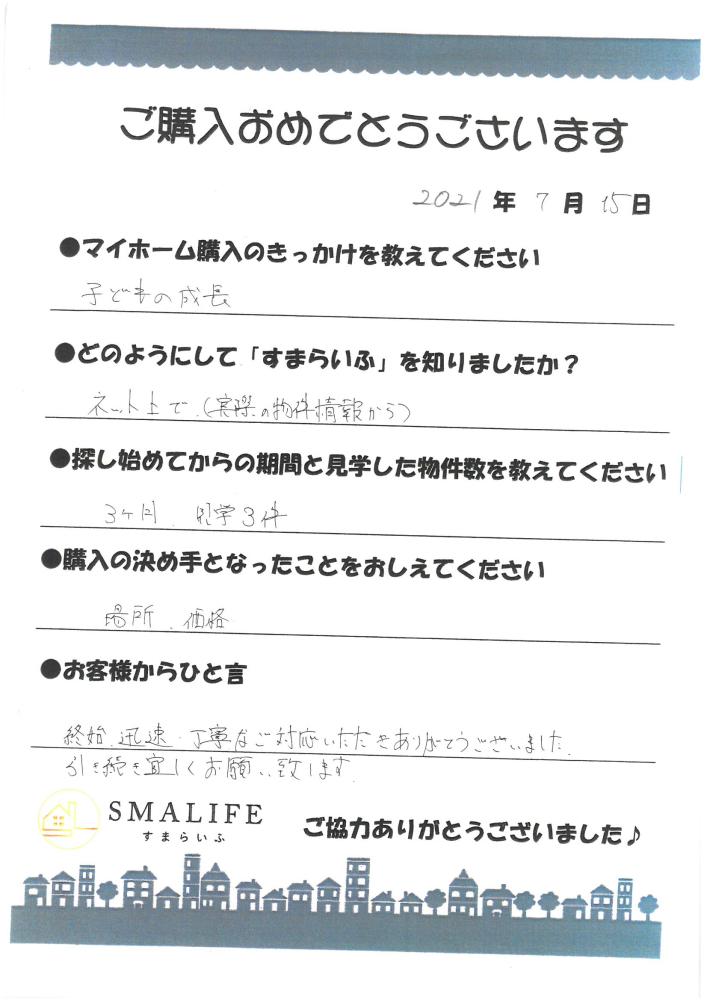 ご購入おめでとうございます
2021年 7月 15日
●マイホーム購入のきっかけを教えてください
子どもの成長
●どのようにして「すまらいふ」を知りましたか？
ネット上で、(実際の物件情報から)
●探し始めてからの期間と見学した物件数を教えてください
3ヶ月、見学3件
●購入の決め手となったことをおしえてください
場所、価格
●お客様からひと言
終始、迅速・丁寧なご対応いただきありがとうございました。
引き続き宜しくお願い致します。
SMALIFE
すまらいふ
ご協力ありがとうございました♪